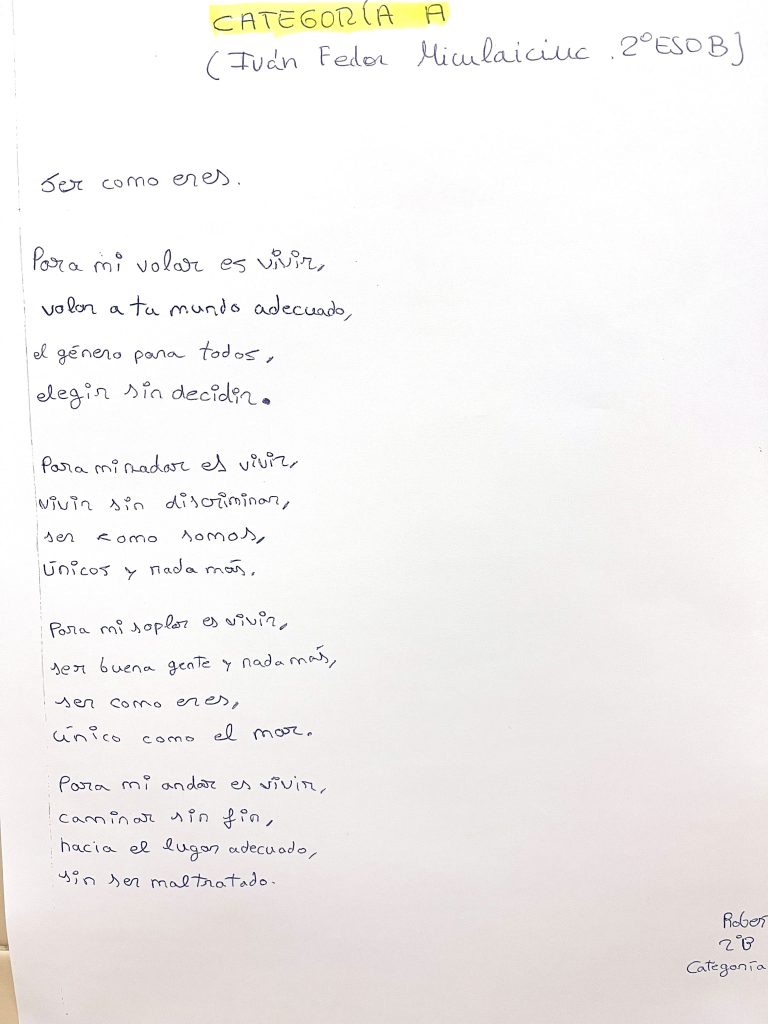 CATEGORÍA A
(Iván Fedor Miculaiciuc. 2º ESO B)
Ser como eres.
Para mi volar es vivir,
volar a tu mundo adecuado,
el género para todos,
elegir sin decidir.
Para mi nadar es vivir,
vivir sin discriminar,
ser como somos,
únicos y nada más.
Para mi soplar es vivir,
ser buena gente y nada más,
ser como eres,
único como el mar.
Para mi andar es vivir,
caminar sin fin,
hacia el lugar adecuado,
sin ser maltratado.
2ºB
Categoría